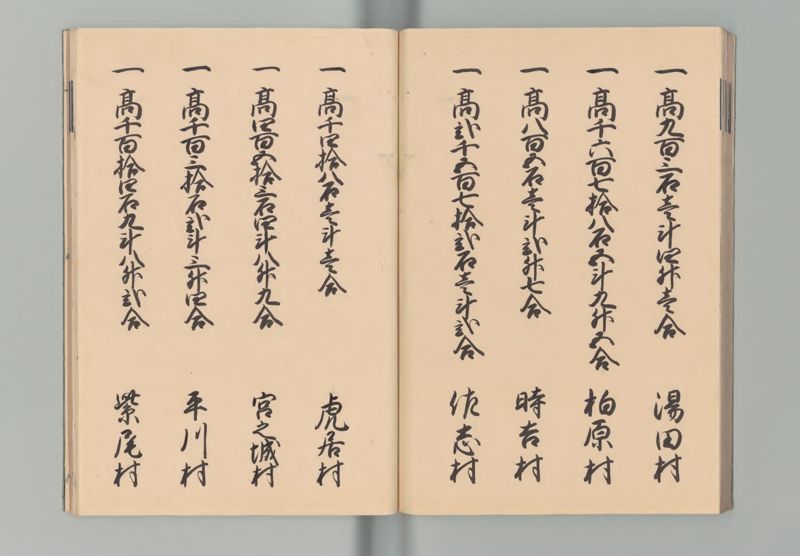 一高九百三石壱斗四升壱合 湯田村
一高千六百七拾八石五斗九升五合 柏原村
一高八百五石壱斗弐升七合 時吉村
一高弐千五百七拾弐石壱斗弐合 佐志村
一高千四拾八石壱斗壱合 虎居村
一高四百五拾三石四斗八升九合 宮之城村
一高千百三拾石弐斗三升四合 平川村
一高千百拾四石九斗八升弐合 紫尾村